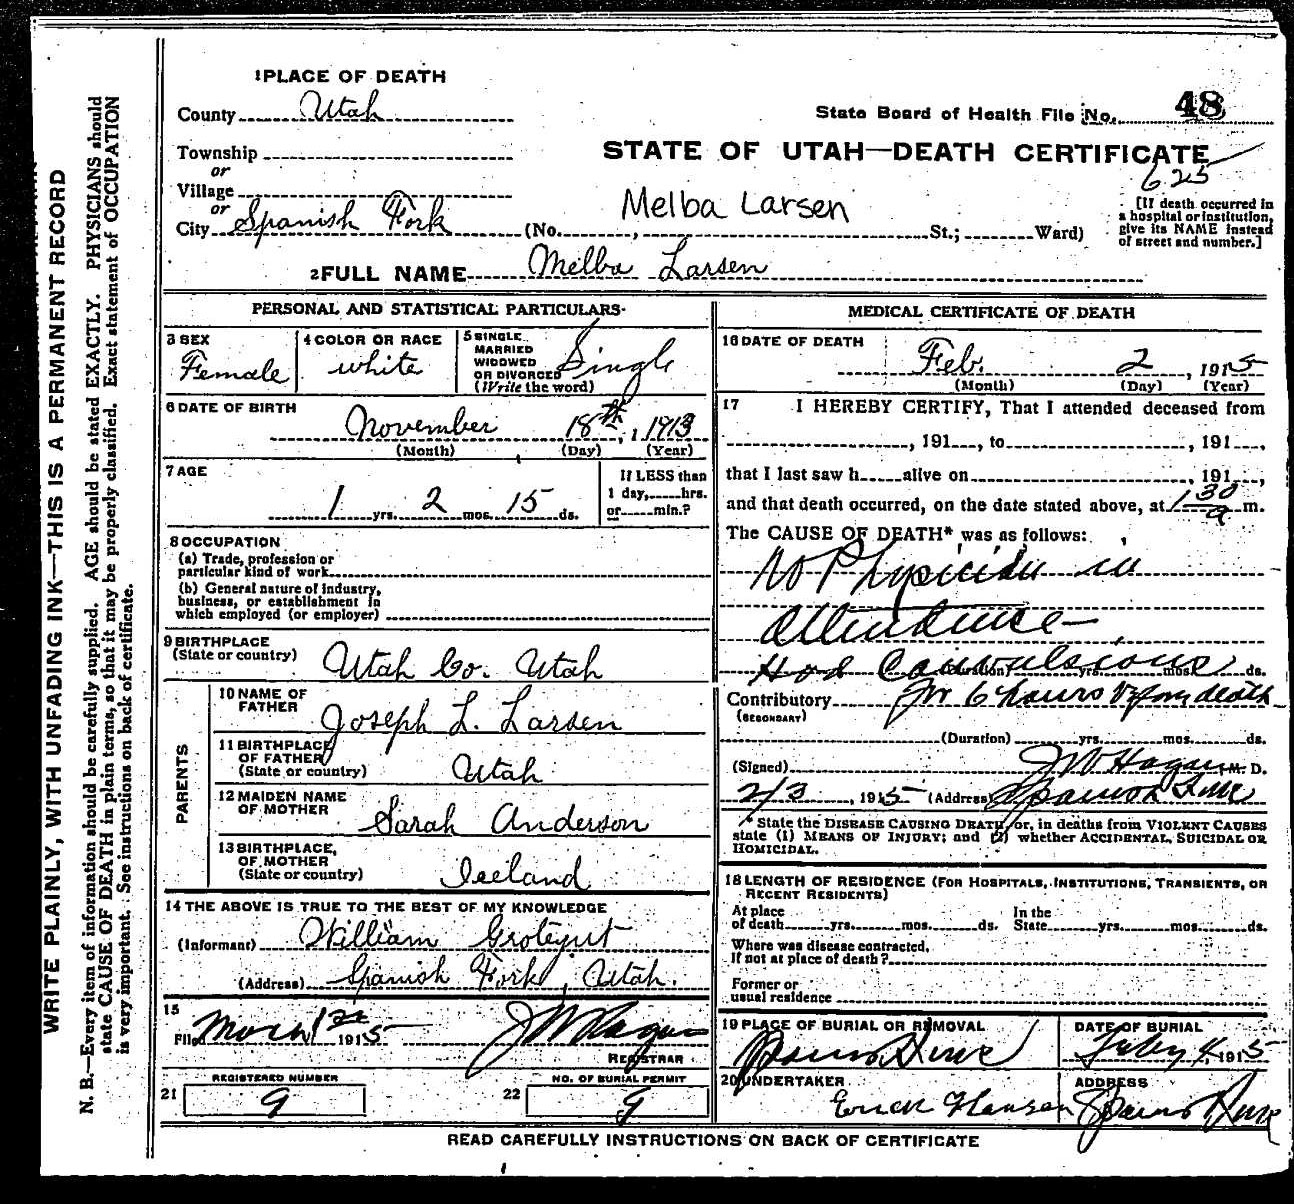 WRITE PLAINLY, WITH UNFADING INK—THIS IS A PERMANENT RECORD
N. B.—Every item of information should be carefully supplied. AGE should be stated EXACTLY. PHYSICIANS should
state CAUSE OF DEATH in plain terms, so that it may be properly classified. Exact statement of OCCUPATION
is very important. See instructions on back of certificate.
1 PLACE OF DEATH
County Utah
State Board of Health File No. 48
Township
or
Village
or
City Spanish Fork
STATE OF UTAH—DEATH CERTIFICATE
625
Melba Larsen
(No. , St.; Ward)
[If death occurred in
a hospital or institution,
give its NAME instead
of street and number.]
2 FULL NAME Melba Larsen
PERSONAL AND STATISTICAL PARTICULARS
3 SEX
Female
4 COLOR OR RACE
white
5 SINGLE
MARRIED
WIDOWED
OR DIVORCED
(Write the word)
Single
6 DATE OF BIRTH
November 18th, 1913
(Month) (Day) (Year)
7 AGE
1 yrs. 2 mos. 15 ds.
If LESS than
1 day, hrs.
or min.?
8 OCCUPATION
(a) Trade, profession or
particular kind of work
(b) General nature of industry,
business, or establishment in
which employed (or employer)
9 BIRTHPLACE
(State or country)
Utah Co. Utah
PARENTS
10 NAME OF
FATHER
Joseph L. Larsen
11 BIRTHPLACE
OF FATHER
(State or country)
Utah
12 MAIDEN NAME
OF MOTHER
Sarah Anderson
13 BIRTHPLACE,
OF MOTHER
(State or country)
Iceland
14 THE ABOVE IS TRUE TO THE BEST OF MY KNOWLEDGE
(Informant) William Grotegut
(Address) Spanish Fork, Utah.
15
Filed March 1st 1915 J W Hagan
REGISTRAR
21
REGISTERED NUMBER
9
22
NO. OF BURIAL PERMIT
9
MEDICAL CERTIFICATE OF DEATH
16 DATE OF DEATH
Feb. 2, 1915
(Month) (Day) (Year)
17 I HEREBY CERTIFY, That I attended deceased from
, 191 , to , 191 ,
that I last saw h alive on , 191 ,
and that death occurred, on the date stated above, at 1 30 a m.
The CAUSE OF DEATH* was as follows:
No Physician in
attendance—
Had Convulsions
(Duration) yrs. mos. ds.
Contributory for 6 hours before death
(SECONDARY)
(Duration) yrs. mos. ds.
(Signed) J W Hagan M. D.
2/3, 1915 (Address) Spanish Fork
* State the DISEASE CAUSING DEATH, or, in deaths from VIOLENT CAUSES
state (1) MEANS OF INJURY; and (2) whether ACCIDENTAL, SUICIDAL OR
HOMICIDAL.
18 LENGTH OF RESIDENCE (FOR HOSPITALS, INSTITUTIONS, TRANSIENTS, OR
RECENT RESIDENTS)
At place
of death yrs. mos. ds.
In the
State yrs. mos. ds.
Where was disease contracted,
If not at place of death?
Former or
usual residence
19 PLACE OF BURIAL OR REMOVAL
Spanish Fork
DATE OF BURIAL
Feby 4, 1915
20 UNDERTAKER
Erick Hansen
ADDRESS
Spanish Fork
READ CAREFULLY INSTRUCTIONS ON BACK OF CERTIFICATE